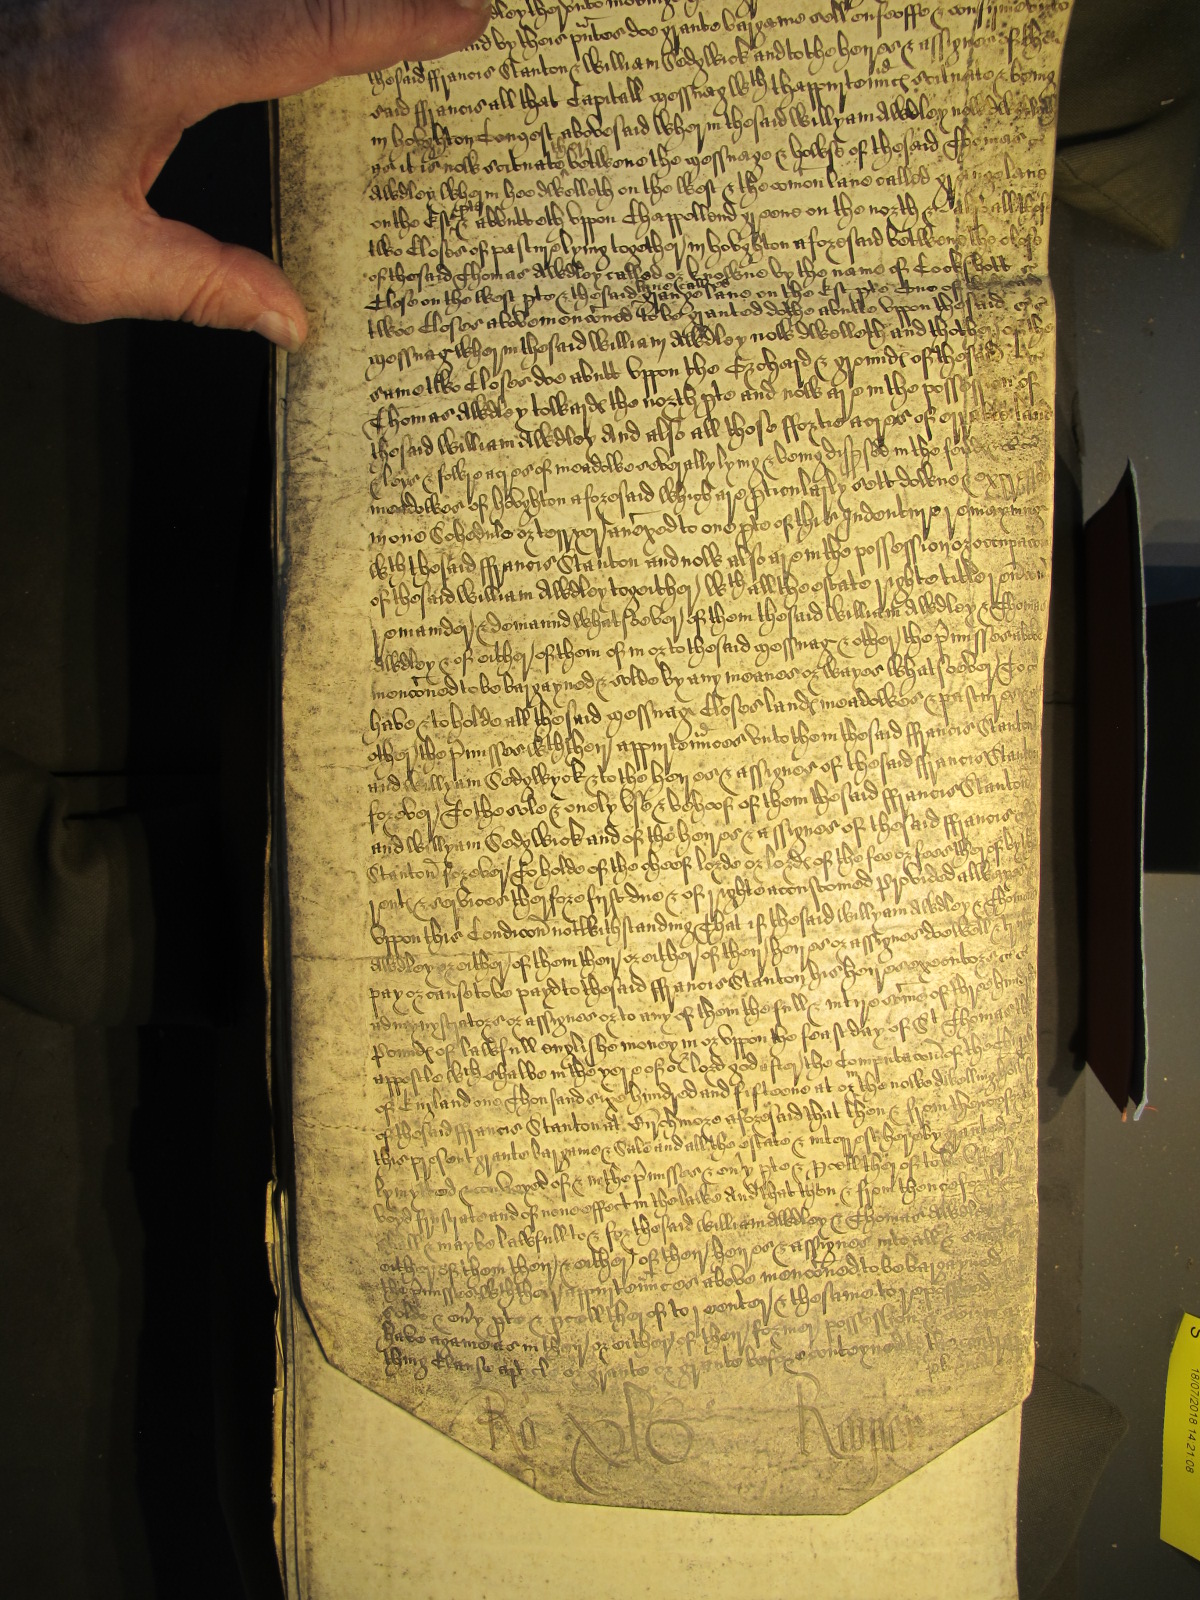 and by theis pñtes doe grante bargaine sell enfeoffe & confirme unto
thesaid ffrancis Stanton & William Sedgwick and to the heires & assignes of the
said ffrancis all that Capitall messuag wth thappurtenncꝭ scituate & being
in houghton Conquest abovesaid wherin thesaid Willyam Awdley now dwelleth
as it is now scituate betwene the messuage & howse of the said Thomas
Awdley wherin hee dwelleth on the west & the comon lane called grange lane
on the Est pte & abutteth uppon Chappellend greene on the north & also all those
two Closes of pasture lying together in hoghton aforesaid betwene the close
of thesaid Thomas Awdley called or knowne by the name of Cookshott
Close on the west pte & thesaid lane called grange lane on the Est pte One of
twoe Closes abovemenconed to be granted dothe abutte uppon thesaid
messuag wherin thesaid William Awdley now dwelleth and thother of the
same two Closes doe abutt uppon the Orchard & groundꝭ of thesaid
Thomas Awdley towardꝭ the north pte and now are in the possession of
thesaid William Awdley And also all those ffortie acres of errable land
leys & fowre acres of meadowe severally lying & being dispsed in the feildꝭ &
meadowes of hoghton aforesaid which are pticularly sett downe & expressed
in one Schedule or terrer anexed to one pte of this Indenture remayning
wth thesaid ffrancis Stanton and now also are in the possession or occupacon
of thesaid William Awdley together wth all the estate righte title
remainder & demaund whatsoever of them thesaid William Awdley & Thomas
Awdley & of either of them of in or to thesaid messuag & other the p̃misses above
menconed to be bargayned & solde by any meanes or wayes whatsoever To
have & to holde all thesaid messuage Closes landꝭ meadowes & pastures
other the p̃misses wth their appurtennces unto them thesaid ffrancis Stanton
and Willyam Sedgwyck & to the heires & assignes of thesaid ffrancis Stanton
forever To the sole & onely use & behoof of them thesaid ffrancis Stanton
and Willyam Sedgwick and of the heires & assignes of thesaid ffrancis
Stanton forever To holde of the cheef lorde or lordꝭ of the fee or fees therof by the
rentꝭ & services therfore first due & of righte accustomed Provided allwayes
Uppon this Condicon notwithstanding That if thesaid Willyam Awdley & Thomas
Awdley or either of them their or either of their heires or assignes doe well & truly
pay or cause to be payd to thesaid ffrancis Stanton his heires executors
admynystrators or assignes or to any of them the full & intire some of three hundred
Poundꝭ of lawfull englishe money in or uppon the feast day of St Thomas the
appostle wch shalbe in the yere of or lord god after the Computacon of the Church
of England one Thousand sixe hundred and fifteene at or in the nowe dwelling howse
of thesaid ffrancis Stanton at Birchmore aforesaid that then & from thenceforth
this present grante bargaine & Sale and all the estate & interest hereby granted
lymyted & conveyed of & in the p̃misses & ev̾y pte & pcell therof to be
voyd frustrate and of none effect in the lawe And that then & from thenceforth
shall & maybe lawfull to & for thesaid William Awdley & Thomas Awdley
either of them their & either of their heires & assignes into all &
the p̃misses wth their appurtennces above menconed to be bargayned
solde & ev̾y pte & pcell therof to reenter & thesame to repossesse
have againe as in their or either of their former possession
thing Clause article or grante or grante before conteyned to the contrary
Ro Rayner
18/07/2018 14:21:08